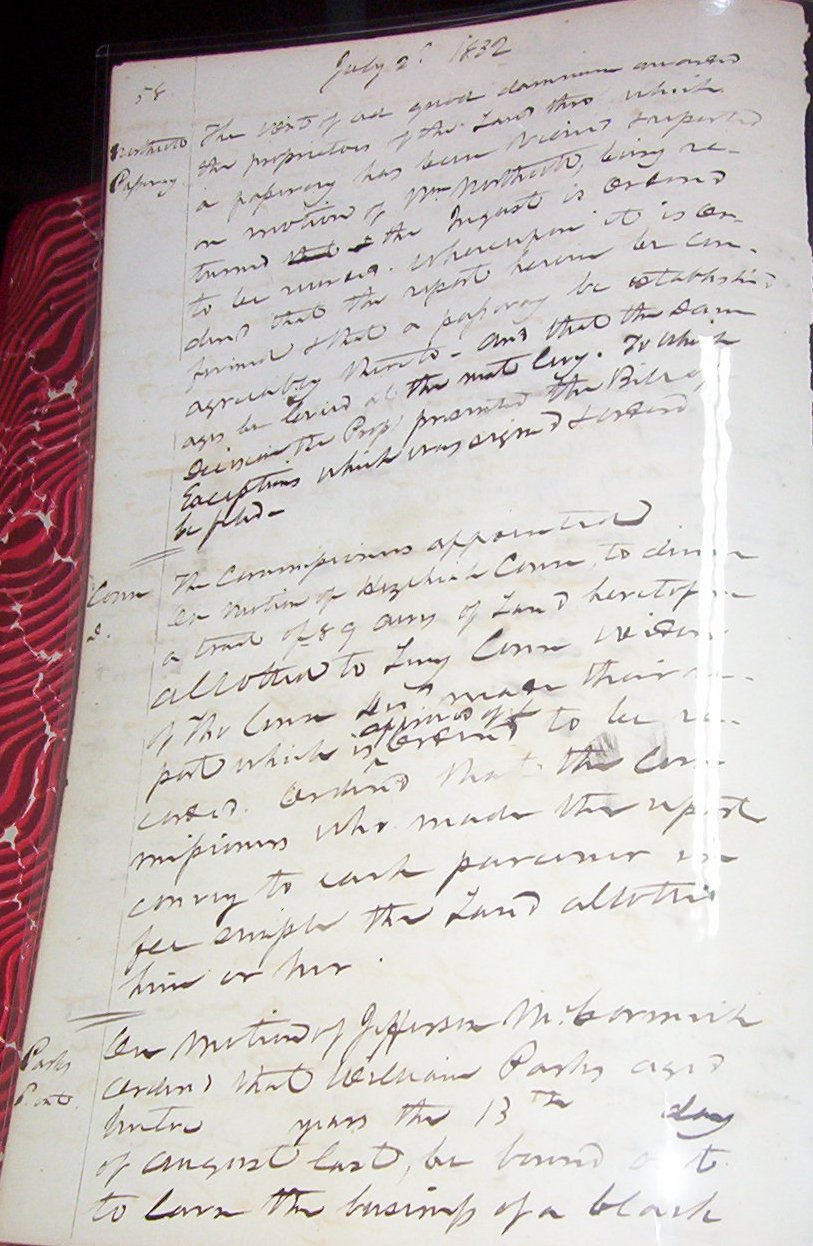 58
July 2d 1832
Northcutt
Passway
The writ of ad quod damnum awarded
the proprietors of the Land thro which
a passway has been viewed & reported
on motion of Wm Northcutt, being re-
turned the Inquest is Ordered
to be recorded. Whereupon it is Or-
dered that the report herein be con-
firmed & that a passway be established
agreeably thereto - and that the dam
ages be levied at the next levy. To which
Decision the Propr presented the Bill of
Exceptions which was signed & ordered
be filed -
Conn
D.
The Commissioners appointed
On Motion of Hezekiah Conn, to divide
a tract of 89 acres of Land heretofore
allotted to Lucy Conn widow
of Tho Conn Decd made their re-
port which is approved of & Ordered to be re-
corded. Ordered that the Com-
missioners who made the report
convey to each parcener in
fee simple the Land allotted
him or her.
Parks
On Motion of Jefferson McCormick
Ordered that William Parks aged
years the 13th day
of August last, be bound out
to learn the business of a black